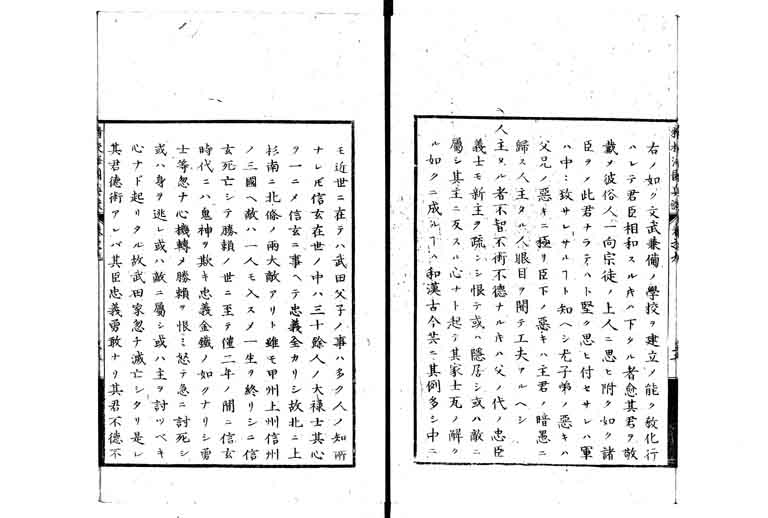 右ノ如ク文武兼備ノ學校ヲ建立ノ能ク敎化行
ハレテ君臣相和スルキハ下タル者愈其君ヲ敬
戴メ彼俗人一向宗徒ノ上人ニ思ヒ附ク如ク諸
臣タノ此君ナラテハト堅ク思ヒ付セサレハ軍
ハ中々致サレサルヿト知ヘシ尤子弟ノ惡キハ
父兄ノ惡キニ極リ臣下ノ惡キハ主君ノ暗愚ニ
歸ス人主タル人眼目ヲ開テ工夫アルヘシ
人主タル者不智不術不德ナルキハ父ノ代ノ忠臣
義士モ新主ヲ疏ンシ恨テ或ハ隱居シ或ハ敵ニ
屬シ其主ニ反スル心ナト起テ其家士瓦ノ解ク
ル如クニ成ルヿハ和漢古今共ニ其例多シ中ニ
モ近世ニ在テハ武田父子ノ事ハ多ク人ノ知所
ナレ𪜈信玄在世ノ中ハ三十餘人ノ大祿士其心
ヲ一ニメ信玄ニ事ヘテ忠義全カリシ故北ニ上
杉南ニ北條ノ兩大敵アリト雖モ甲州上州信州
ノ三國ヘ敵ハ一人モ入スメ一生ヲ終リシニ信
玄死亡シテ勝賴ノ世ニ至テ僅二年ノ間ニ信玄
時代ニハ鬼神ヲ欺キ忠義金鐵ノ如クナリシ勇
士等忽ナ心機轉メ勝賴ヲ恨ミ怒テ急ニ討死シ
或ハ身ヲ逃レ或ハ敵ニ屬シ或ハ主ヲ討ツベキ
心ナド起リタル故武田家忽ナ滅亡シタリ是レ
其君德術アレバ其臣忠義勇敢ナリ其君不德不